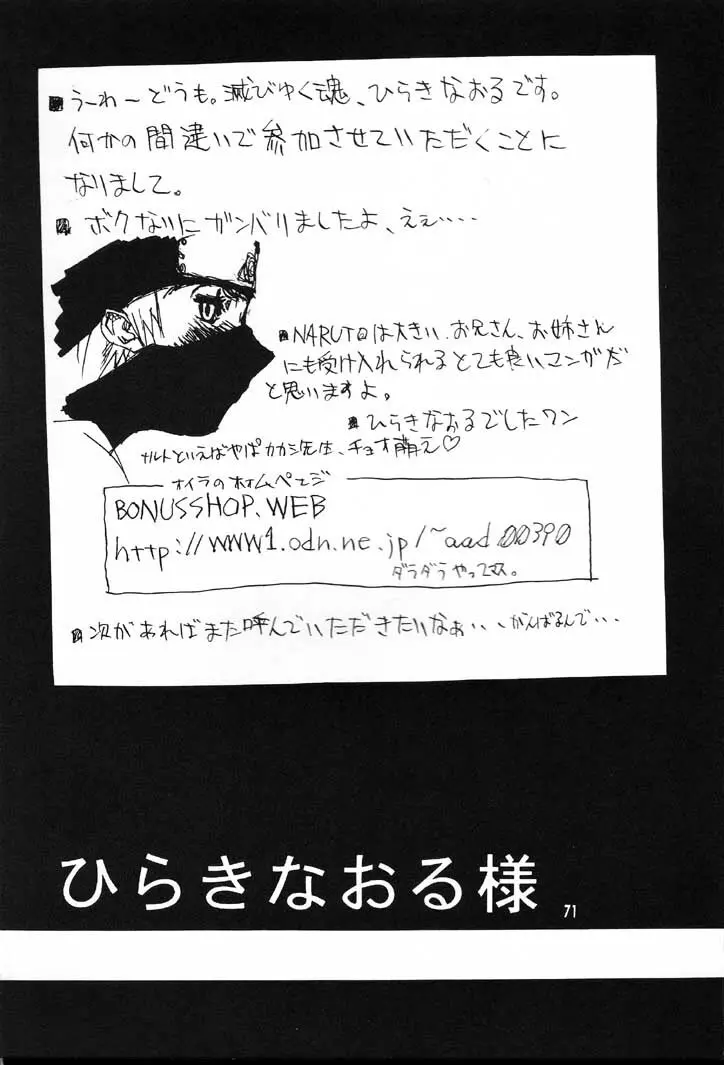 ■うーわーどうも。滅びゆく魂、ひらきなおるです。
何かの間違いで参加させていただくことに
なりまして。
■ボクなりにガンバリましたよ、えぇ・・・・
■NARUTOは大きい、お兄さん、お姉さん
にも受け入れられるとても良いマンガだ
と思いますよ。
■ひらきなおるでしたワン
ナルトといえばやぱカカシ先生、チョオ萌え♡
オイラのホォムペェジ
BONUSSHOP.WEB
http://www1.odn.ne.jp/~aad00390
ダラダラやってマス。
■次があればまた呼んでいただきたいなぁ・・、がんばるんで・・・
ひらきなおる様
71